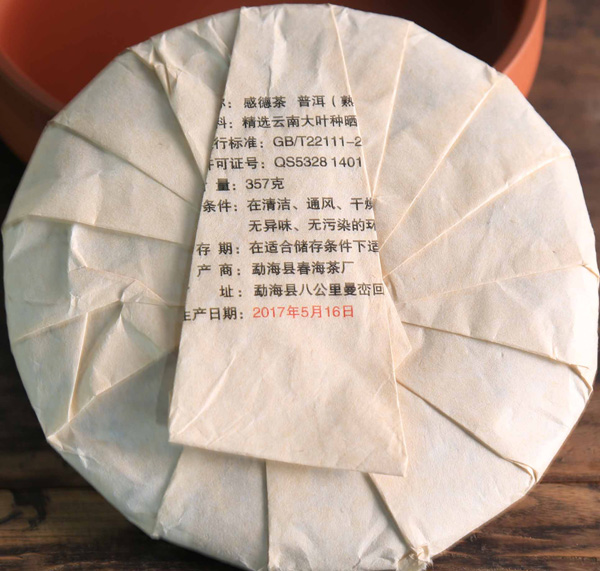 称：感德茶 普洱（熟
料：精选云南大叶种晒
行标准：GB/T22111-2
许可证号：QS5328 1401
量：357克
条件：在清洁、通风、干燥
无异味、无污染的环
存 期：在适合储存条件下适
产 商：勐海县春海茶厂
址：勐海县八公里曼峦回
生产日期：2017年5月16日